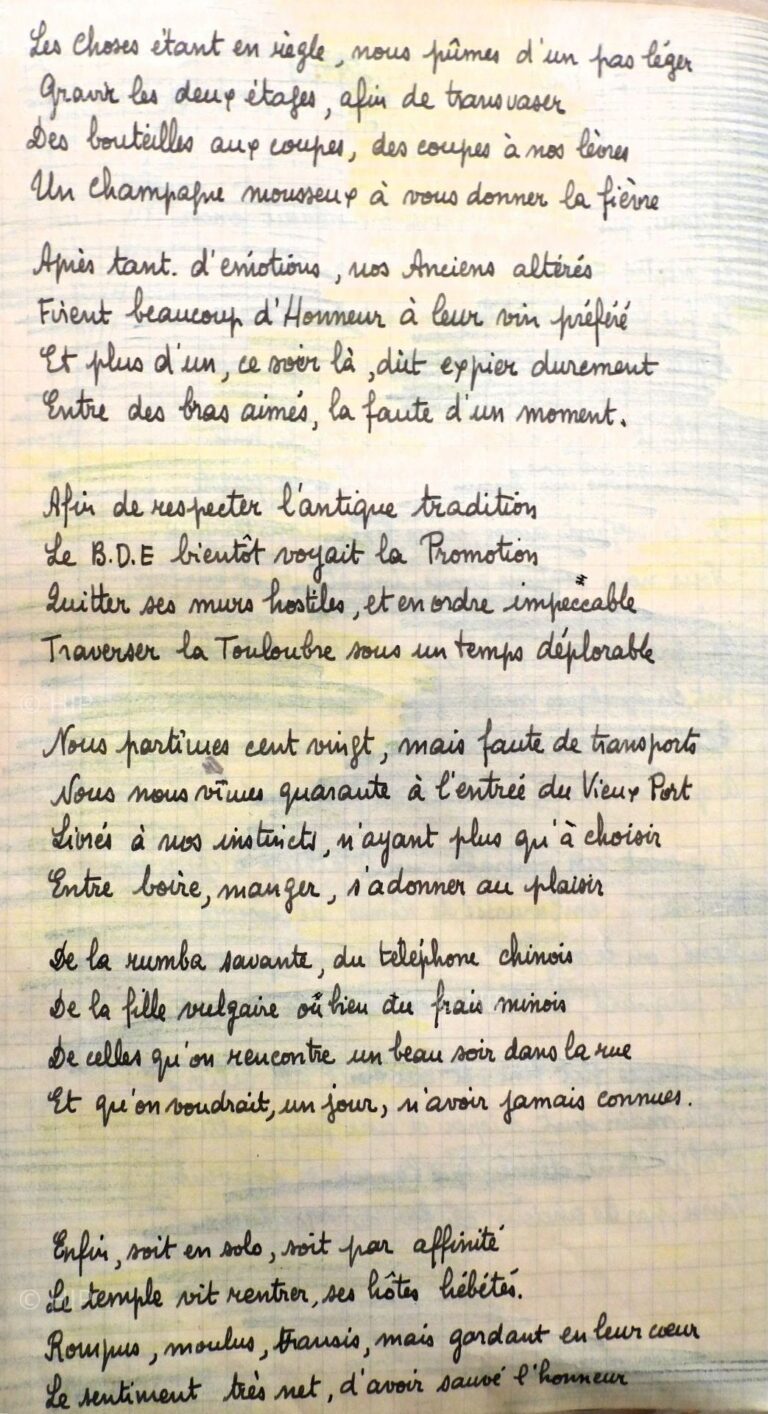 Les Choses étant en règle, nous pûmes d'un pas léger
Gravir les deux étages, afin de transvaser
Des bouteilles aux coupes, des coupes à nos lèvres
Un Champagne mousseux à vous donner la fièvre
Après tant. d'émotions, nos Anciens altérés
Firent beaucoup d'Honneur à leur vin préféré
Et plus d'un, ce soir là, dût expier durement
Entre des bras aimés, la faute d'un moment.
Afin de respecter l'antique tradition
Le B.D.E bientôt voyait la Promotion
Quitter ses murs hostiles, et en ordre impeccable*
Traverser la Touloubre sous un temps déplorable
Nous partîmes cent vingt, mais faute de transports
Nous nous vîmes quarante à l'entrée du Vieux Port
Livrés à nos instincts, n'ayant plus qu'à choisir
Entre boire, manger, s'adonner au plaisir
De la rumba savante, du téléphone chinois
De la fille vulgaire où bien du frais minois
De celles qu'on rencontre un beau soir dans la rue
Et qu'on voudrait, un jour, n'avoir jamais connues.
Enfin, soit en solo, soit par affinité
Le temple vit rentrer, ses hôtes hébétés.
Rompus, moulus, transis, mais gardant en leur cœur
Le sentiment très net, d'avoir sauvé l'honneur